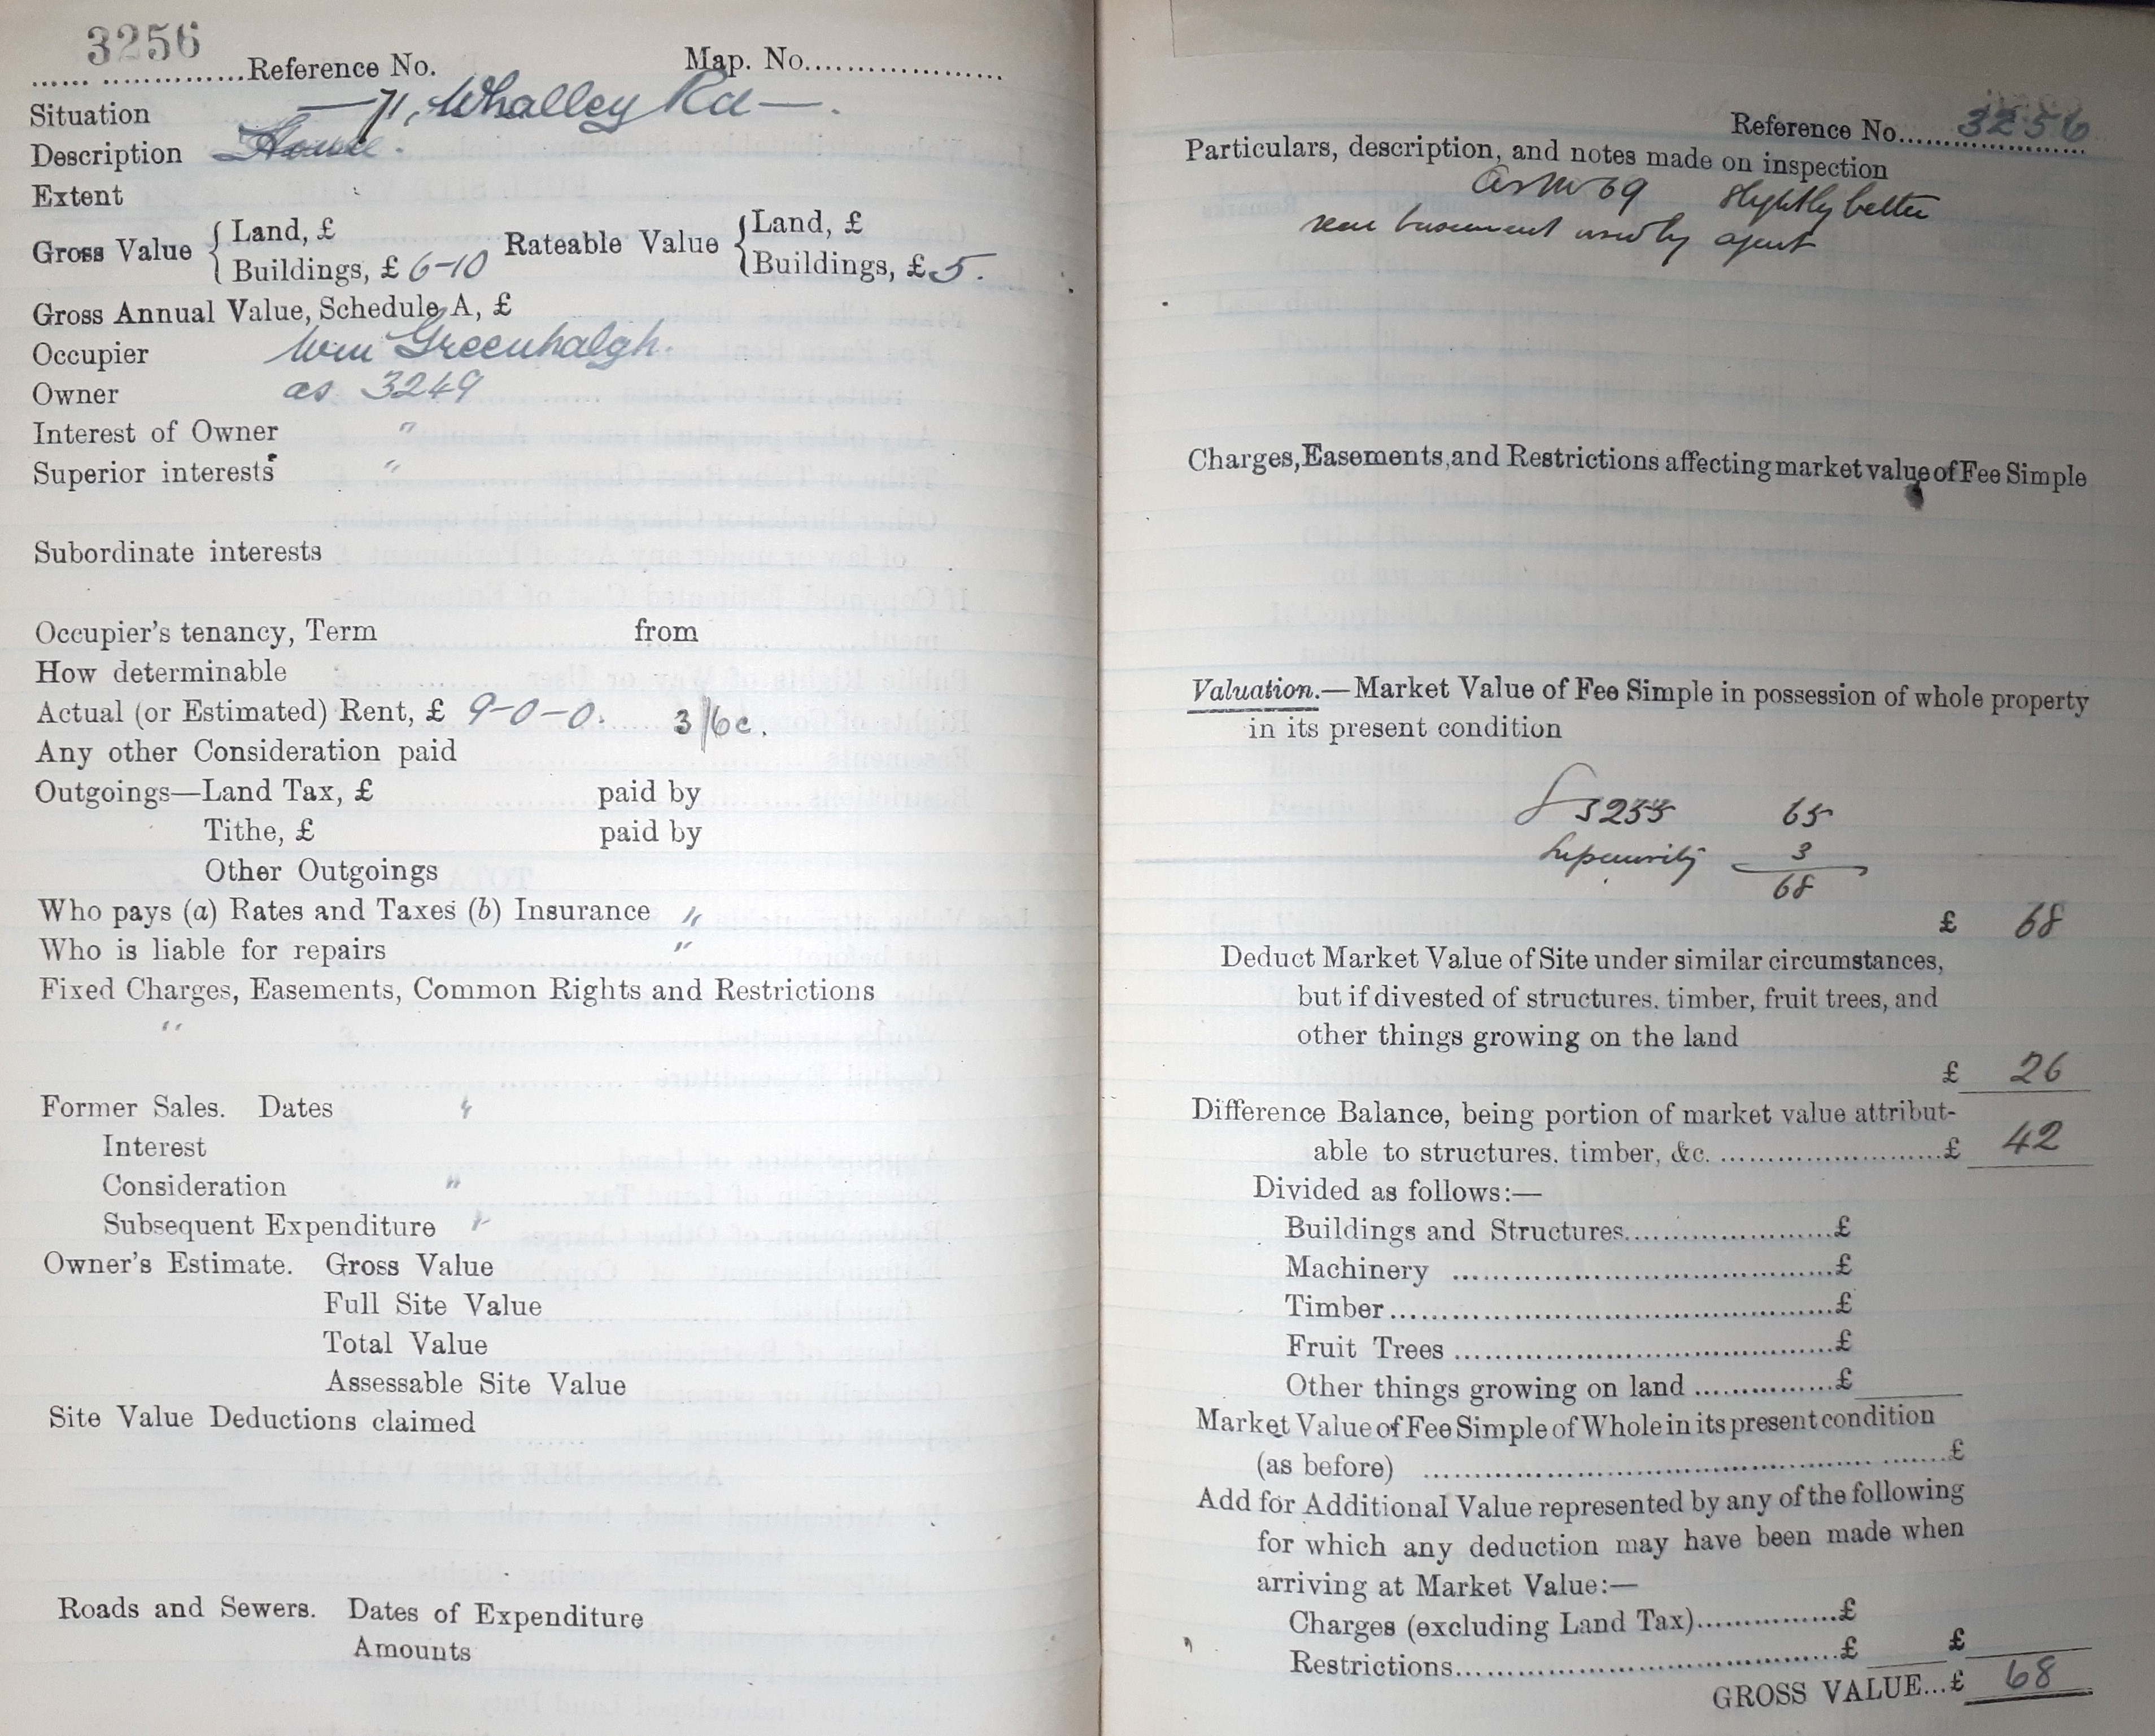 3256
Reference No. Map. No.
Situation 71, Whalley Rd
Description House.
Extent
Gross Value { Land, £ Rateable Value { Land, £
Buildings, £ 6-10 Buildings, £ 5.
Gross Annual Value, Schedule A, £
Occupier Wm Greenhalgh.
Owner as 3249
Interest of Owner "
Superior interests "
Subordinate interests
Occupier's tenancy, Term from
How determinable
Actual (or Estimated) Rent, £ 9-0-0. 3/6c.
Any other Consideration paid
Outgoings—Land Tax, £ paid by
Tithe, £ paid by
Other Outgoings
Who pays (a) Rates and Taxes (b) Insurance "
Who is liable for repairs "
Fixed Charges, Easements, Common Rights and Restrictions
"
Former Sales. Dates "
Interest
Consideration "
Subsequent Expenditure "
Owner's Estimate. Gross Value
Full Site Value
Total Value
Assessable Site Value
Site Value Deductions claimed
Roads and Sewers. Dates of Expenditure
Amounts
Reference No. 3256
Particulars, description, and notes made on inspection
as No 69 slightly better
rear basement used by agent
Charges, Easements, and Restrictions affecting market value of Fee Simple
Valuation.—Market Value of Fee Simple in possession of whole property
in its present condition
3255 65
Superiority 3
68
£ 68
Deduct Market Value of Site under similar circumstances,
but if divested of structures. timber, fruit trees, and
other things growing on the land
£ 26
Difference Balance, being portion of market value attribut-
able to structures. timber, &c. £ 42
Divided as follows:—
Buildings and Structures £
Machinery £
Timber £
Fruit Trees £
Other things growing on land £
Market Value of Fee Simple of Whole in its present condition
(as before) £
Add for Additional Value represented by any of the following
for which any deduction may have been made when
arriving at Market Value:—
Charges (excluding Land Tax) £
Restrictions £ £
GROSS VALUE...£ 68